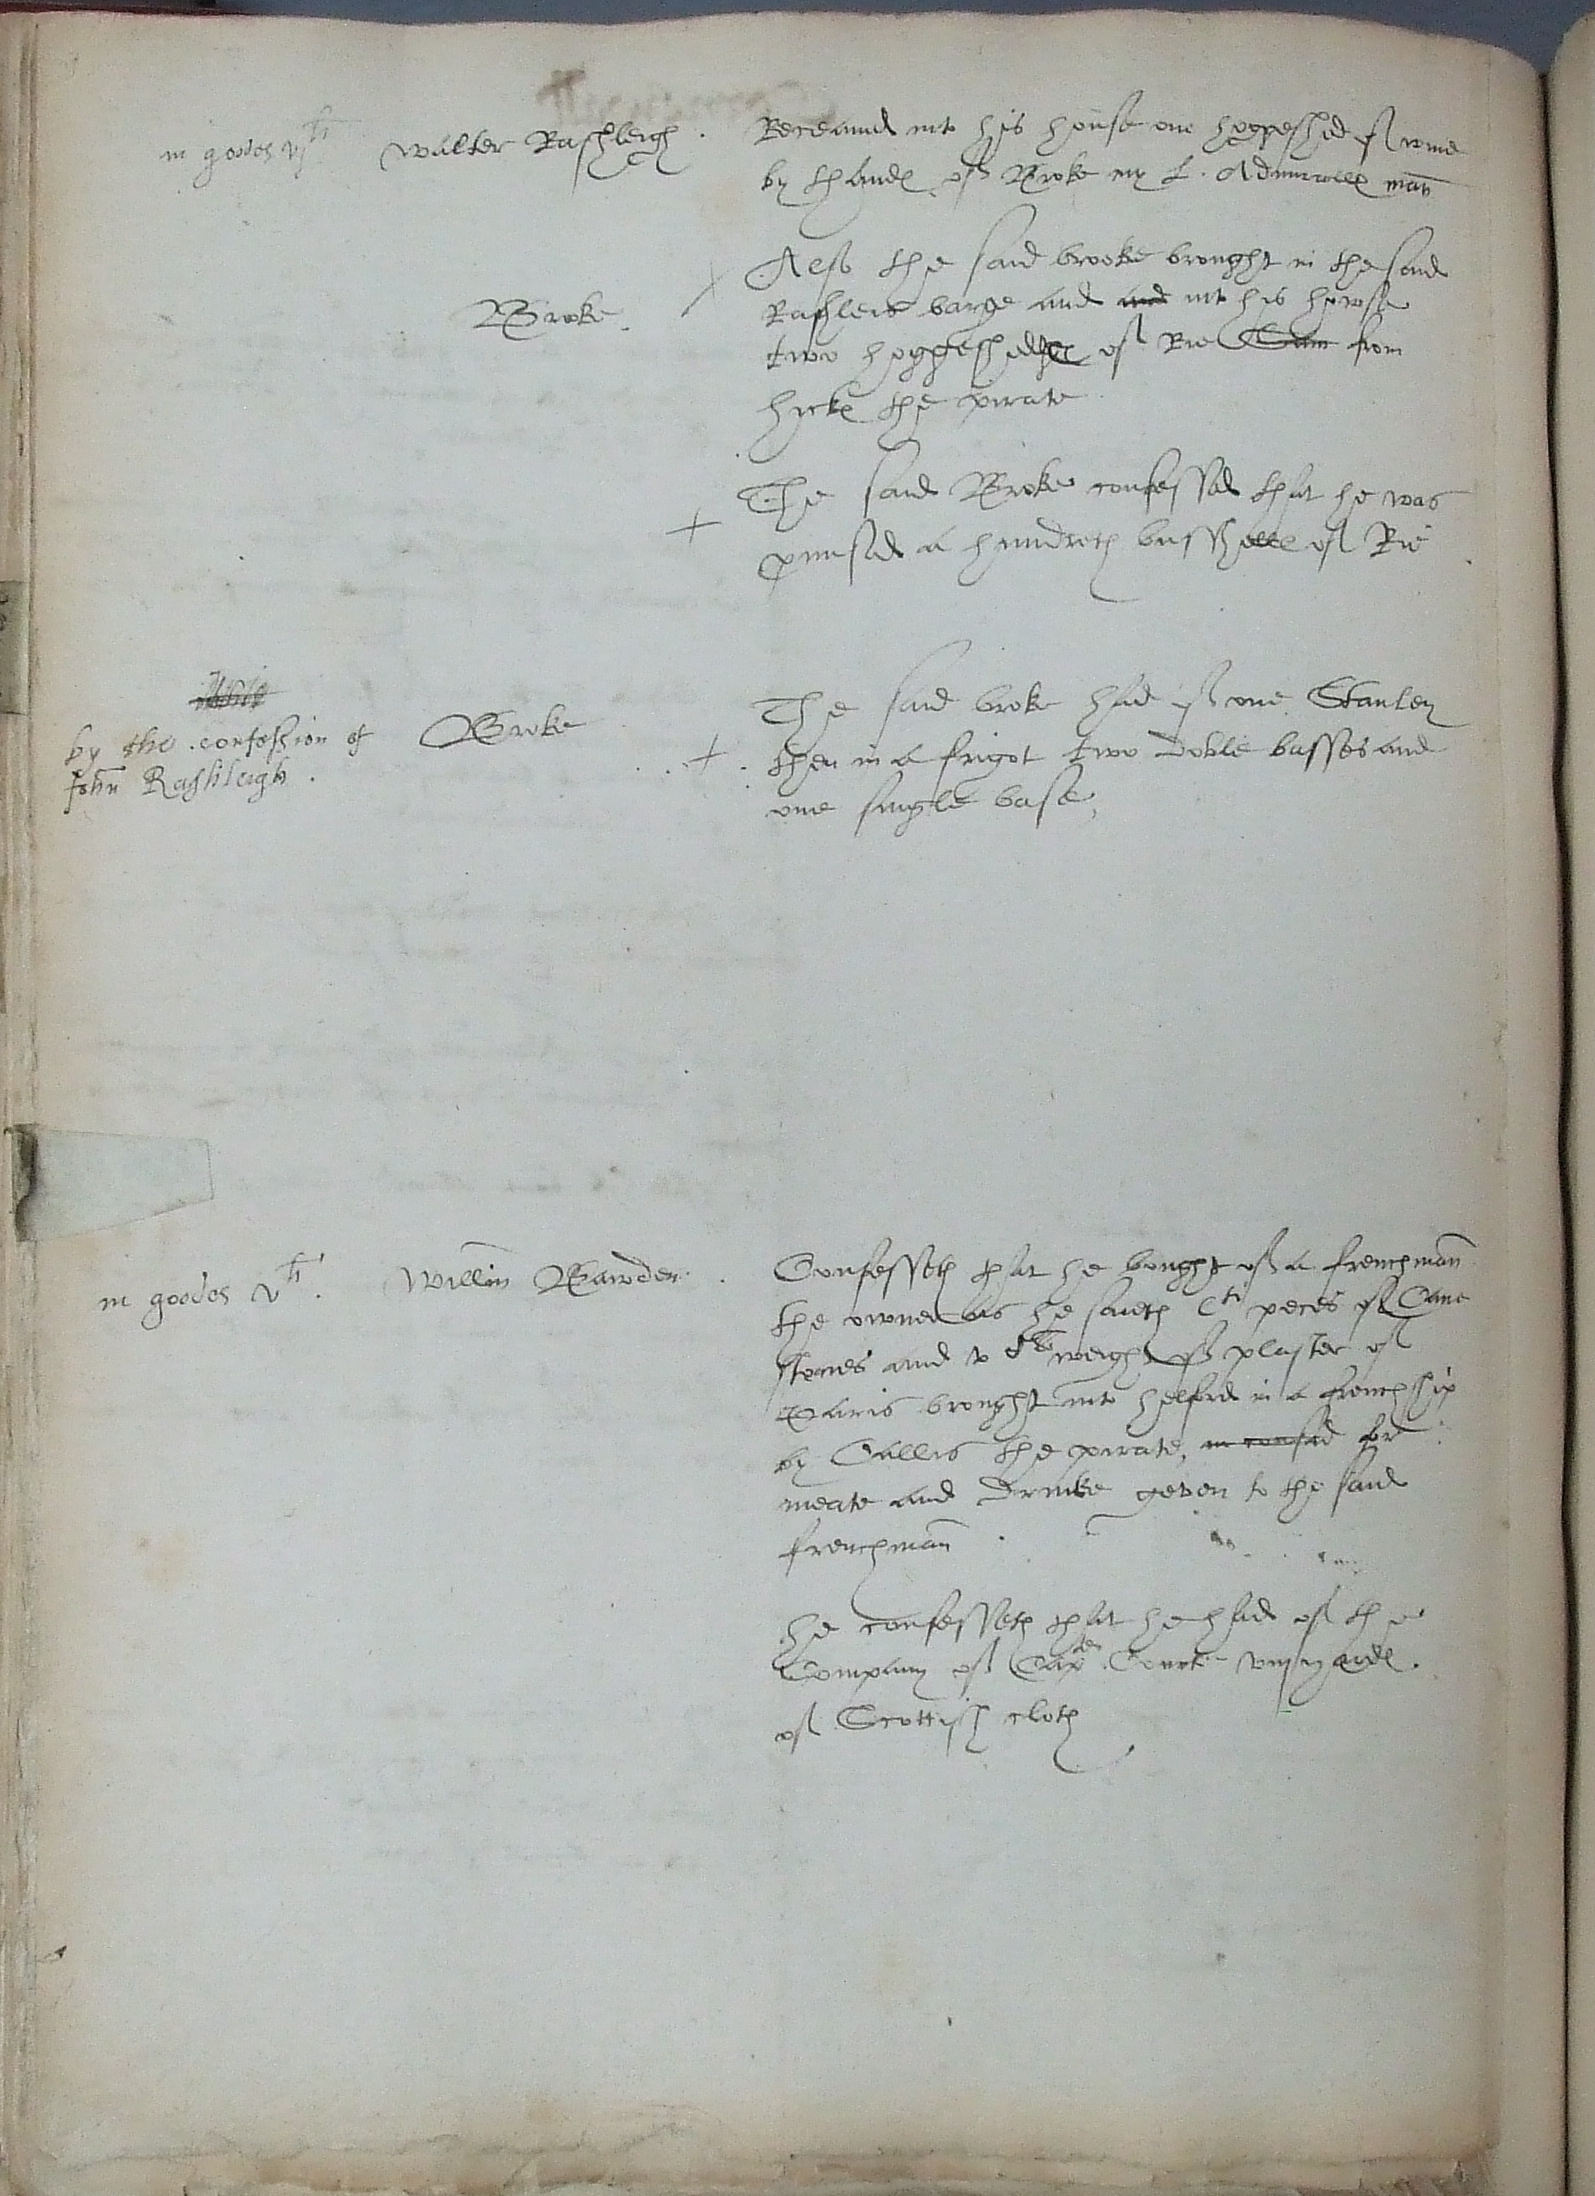 in goodes v li
Walter Rashleigh .
Receaued into his house one hoggeshed of wine
by thandes of Broke my L. Admiralles man
Broke
Also the said brooke brought in the said
Rashleis barge and and into his howse
two hoggeshedes of Rie from
Hickes the pirate
The said Broke confessed that he was
promised a hundreth busshelles of Rie
by the confession of
John Rashleigh .
Broke
The said broke had of one Stanley
then in a frigot two doble basses and
one single base
in goodes v li .
Willm Bawden .
Confesseth that he bought of a frenchman
the owner as he saieth Cti peces of Cane
stones and v weight of plaster of
Paris brought into helford in a french ship
by Callis the pirate, for
meate and Drinke geven to the said
frenchman
He confesseth that he had of the
Company of Capten Courte yardes
of Scottish cloth